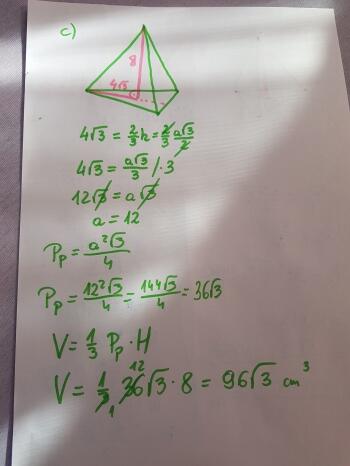 c)
8
4√3
4√3 = 2/3 h = 2/3 a√3/2
4√3 = a√3/3 / ·3
12√3 = a√3
a = 12
Pp = a²√3/4
Pp = 12²√3/4 = 144√3/4 = 36√3
V = 1/3 Pp · H
12
V = 1/3 36√3 · 8 = 96√3 cm³
1